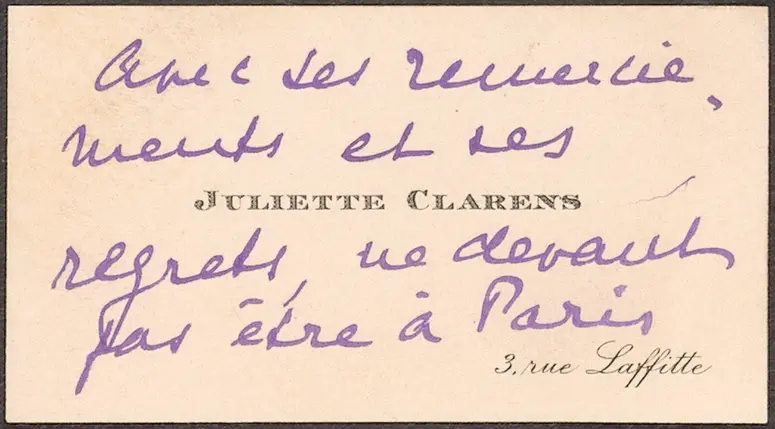 Avec ses remercie-
ments et ses
JULIETTE CLARENS
regrets, ne devant
pas être à Paris
3, rue Laffitte